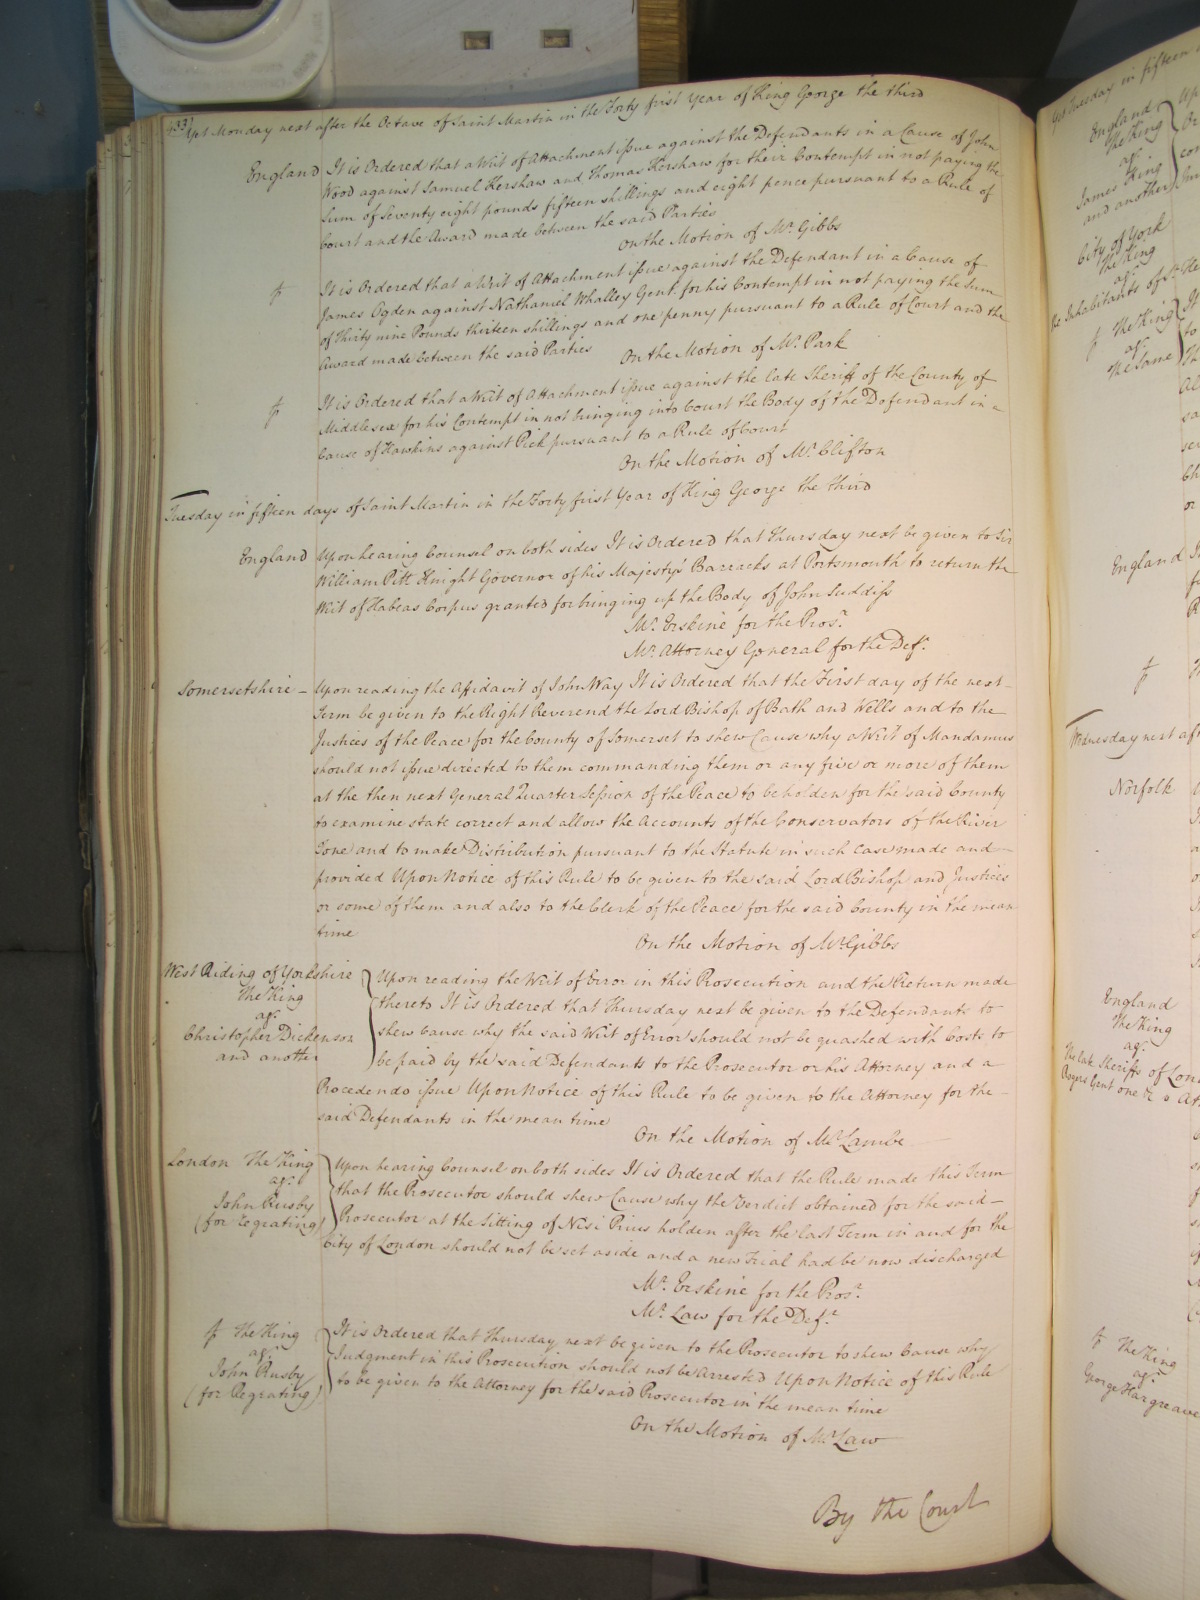 433
Yet Monday next after the Octave of Saint Martin in the Forty first Year of King George the third
England It is Ordered that a Writ of Attachment issue against the Defendants in a Cause of John
Wood against Samuel Kershaw and Thomas Kershaw for their Contempt in not paying the
Sum of Seventy eight pounds fifteen shillings and eight pence pursuant to a Rule of
Court and the Award made between the said Parties
On the Motion of Mr. Gibbs
It is Ordered that a Writ of Attachment issue against the Defendant in a Cause of
James Ogden against Nathaniel Whalley Gent. for his Contempt in not paying the Sum
of Thirty nine Pounds thirteen shillings and one penny pursuant to a Rule of Court and the
Award made between the said Parties
On the Motion of Mr. Park
It is Ordered that a Writ of Attachment issue against the late Sheriff of the County of
Middlesex for his Contempt in not bringing into Court the Body of the Defendant in a
Cause of Hawkins against Pick pursuant to a Rule of Court
On the Motion of Mr. Clifton
Tuesday in fifteen days of Saint Martin in the Forty first Year of King George the third
England Upon hearing Counsel on both sides It is Ordered that Thursday next be given to Sir
William Pitt Knight Governor of his Majesty's Barracks at Portsmouth to return the
Writ of Habeas Corpus granted for bringing up the Body of John Suddiss
Mr. Erskine for the Prosr.
Mr. Attorney General for the Deft.
Somersetshire - Upon reading the Affidavit of John Way It is Ordered that the First day of the next
Term be given to the Right Reverend the Lord Bishop of Bath and Wells and to the
Justices of the Peace for the County of Somerset to shew Cause why a Writ of Mandamus
should not issue directed to them commanding them or any five or more of them
at the then next General Quarter Session of the Peace to be holden for the said County
to examine state correct and allow the Accounts of the Conservators of the River
Tone and to make Distribution pursuant to the Statute in such Case made and
provided Upon Notice of this Rule to be given to the said Lord Bishop and Justices
or some of them and also to the Clerk of the Peace for the said County in the mean
time
On the Motion of Mr. Gibbs
West Riding of Yorkshire
The King
agt.
Christopher Dickenson
and another
Upon reading the Writ of Error in this Prosecution and the Return made
thereto It is Ordered that Thursday next be given to the Defendants to
shew Cause why the said Writ of Error should not be quashed with Costs to
be paid by the said Defendants to the Prosecutor or his Attorney and a
Procedendo issue Upon Notice of this Rule to be given to the Attorney for the
said Defendants in the mean time
On the Motion of Mr. Lambe
London The King
agt.
John Rusby
(for Regrating)
Upon hearing Counsel on both sides It is Ordered that the Rule made this Term
that the Prosecutor should shew Cause why the Verdict obtained for the said
Prosecutor at the Sitting of Nisi Prius holden after the last Term in and for the
City of London should not be set aside and a new Trial had be now discharged
Mr. Erskine for the Prosr.
Mr. Law for the Deft.
The King
agt.
John Rusby
(for Regrating)
It is Ordered that Thursday next be given to the Prosecutor to shew Cause why
Judgment in this Prosecution should not be Arrested Upon Notice of this Rule
to be given to the Attorney for the said Prosecutor in the mean time
On the Motion of Mr. Law
By the Court
Yet Tuesday in fifteen
England
The King
agt.
James King
and another
City of York
The King
agt.
The Inhabitants of St.
The King
agt.
The same
England
Wednesday next aft
Norfolk
England
The King
agt.
The late Sheriffs of Lon
The King
agt.
George Hargreave